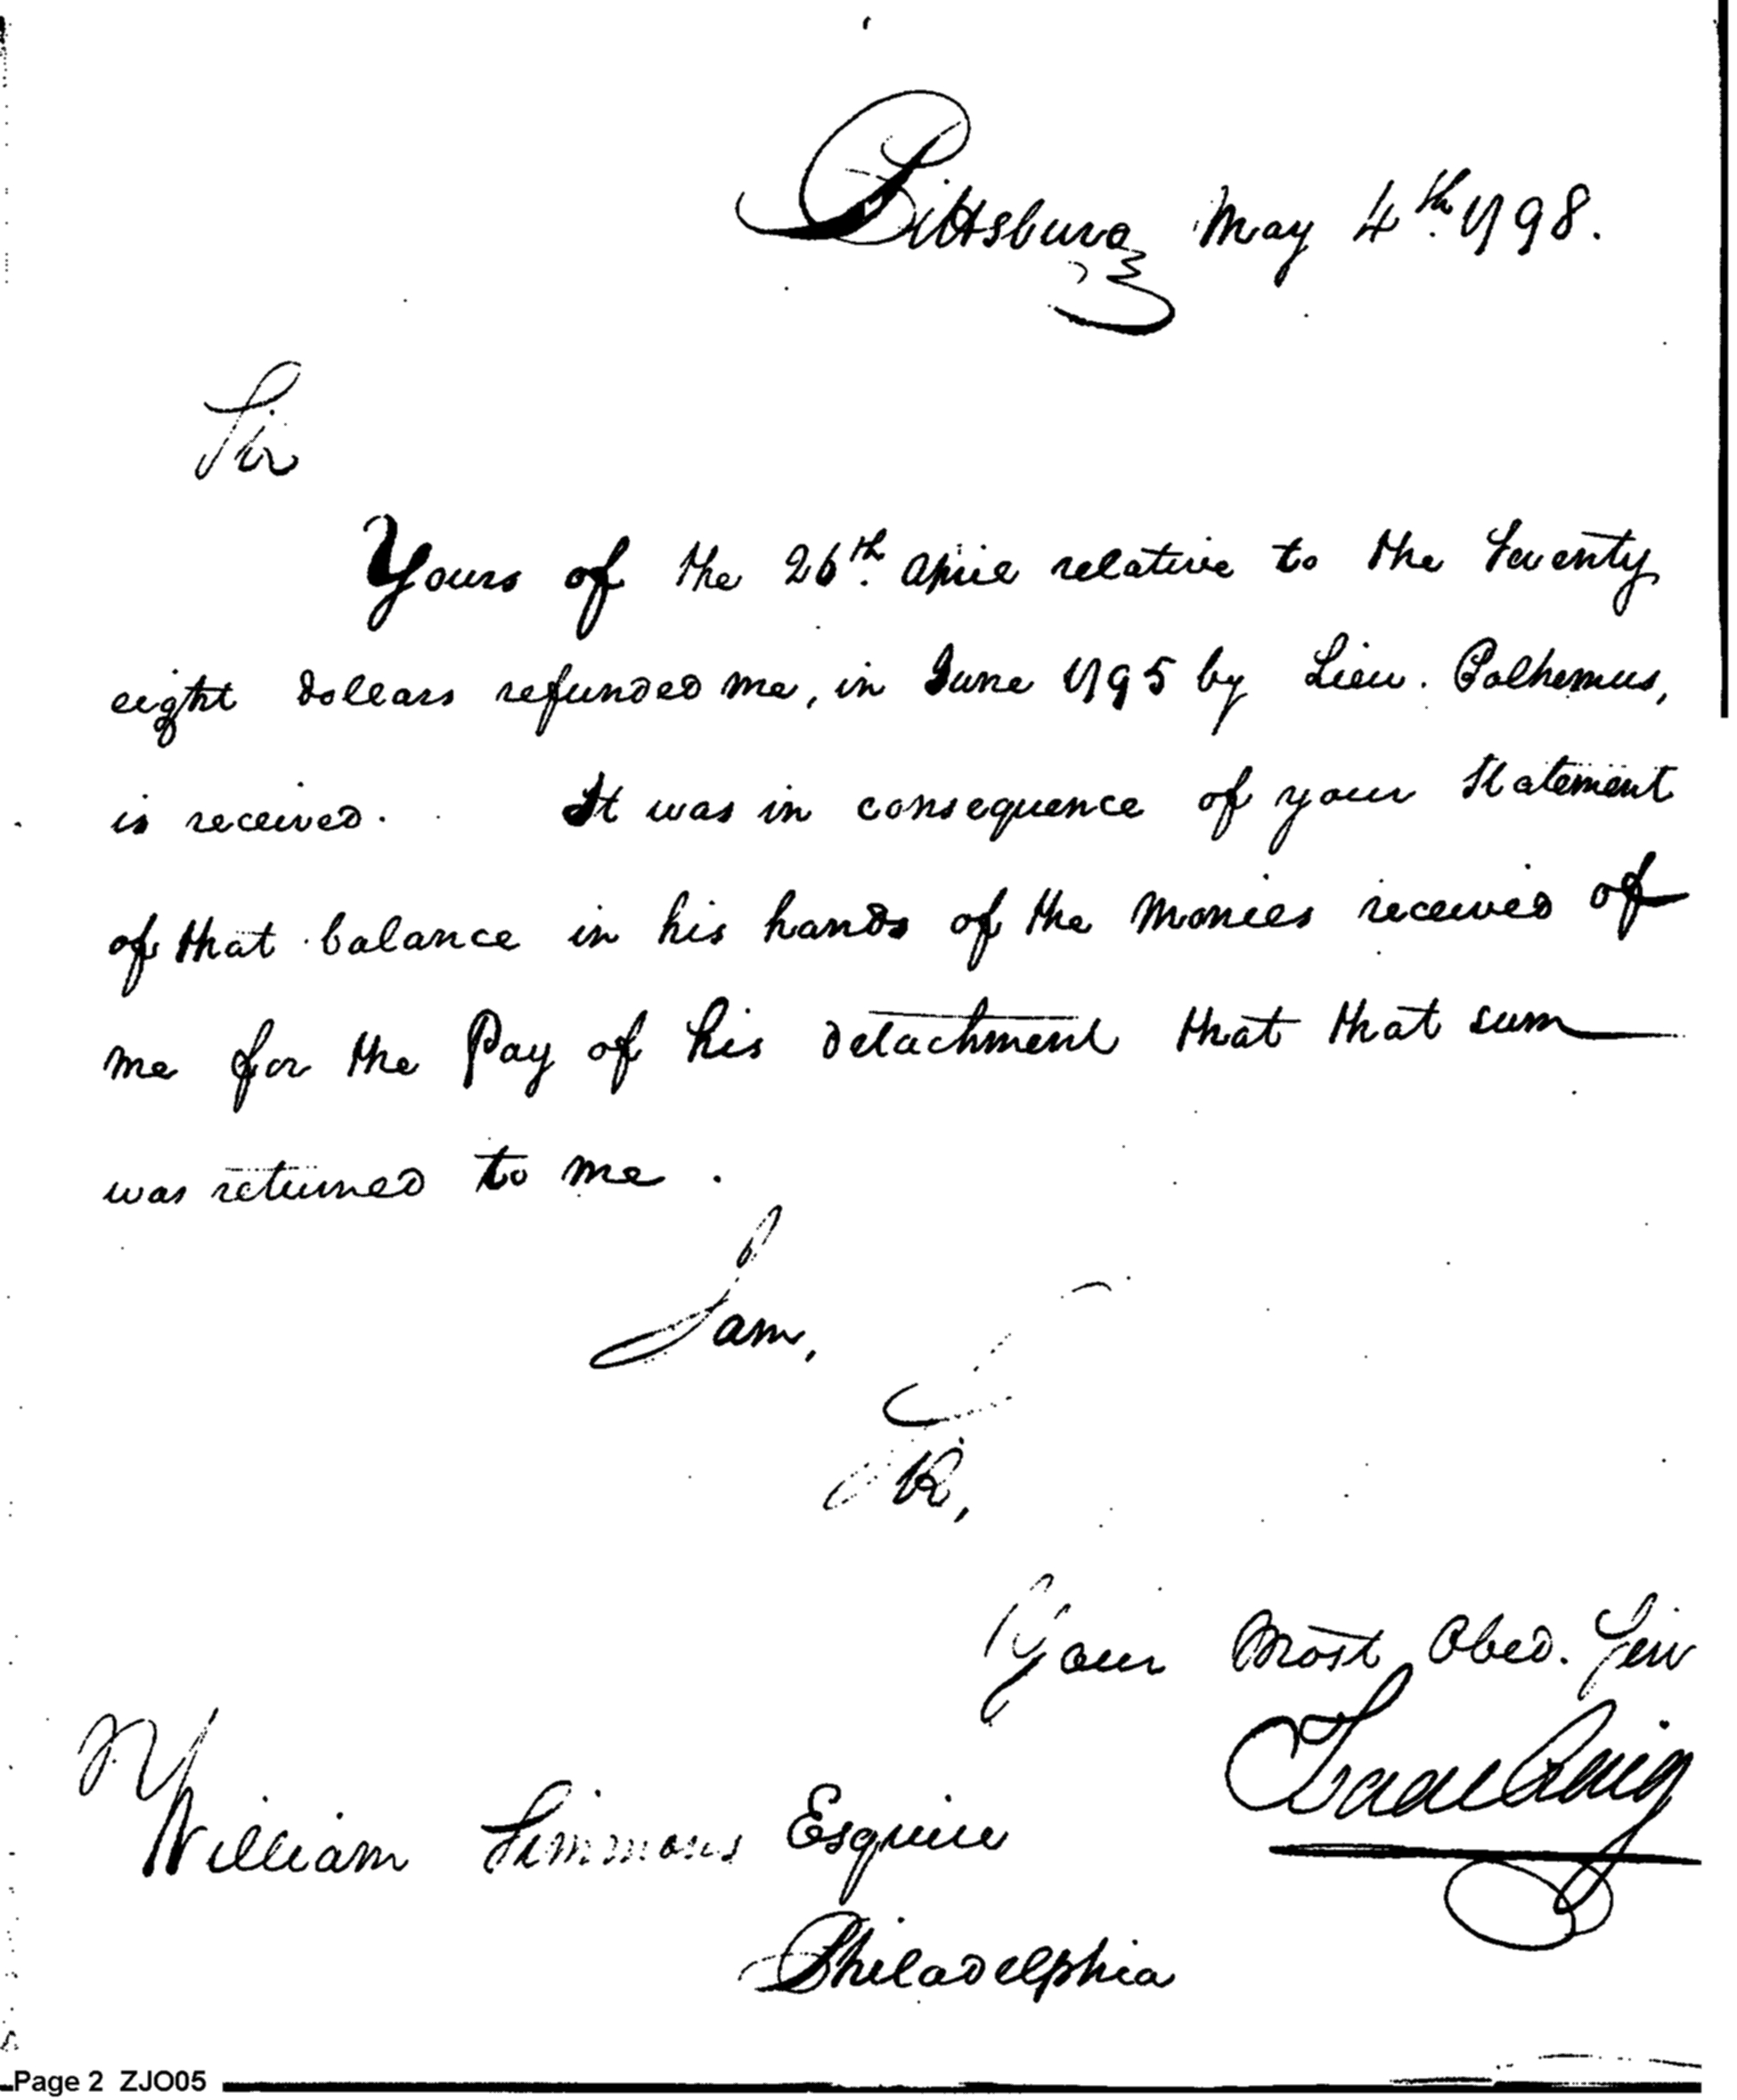 Pittsburg May 4th. 1798.
Sir
Yours of the 26th. April relative to the Seventy
eight dollars refunded me, in June 1795 by Lieu. Polhemus,
is received. It was in consequence of your Statement
of that balance in his hands of the Monies received of
me for the Pay of his detachment that that sum
was returned to me.
I am,
Sir,
Your Most Obed. Serv
Isaac Craig
William Simmons Esquire
Philadelphia
Page 2 ZJO05